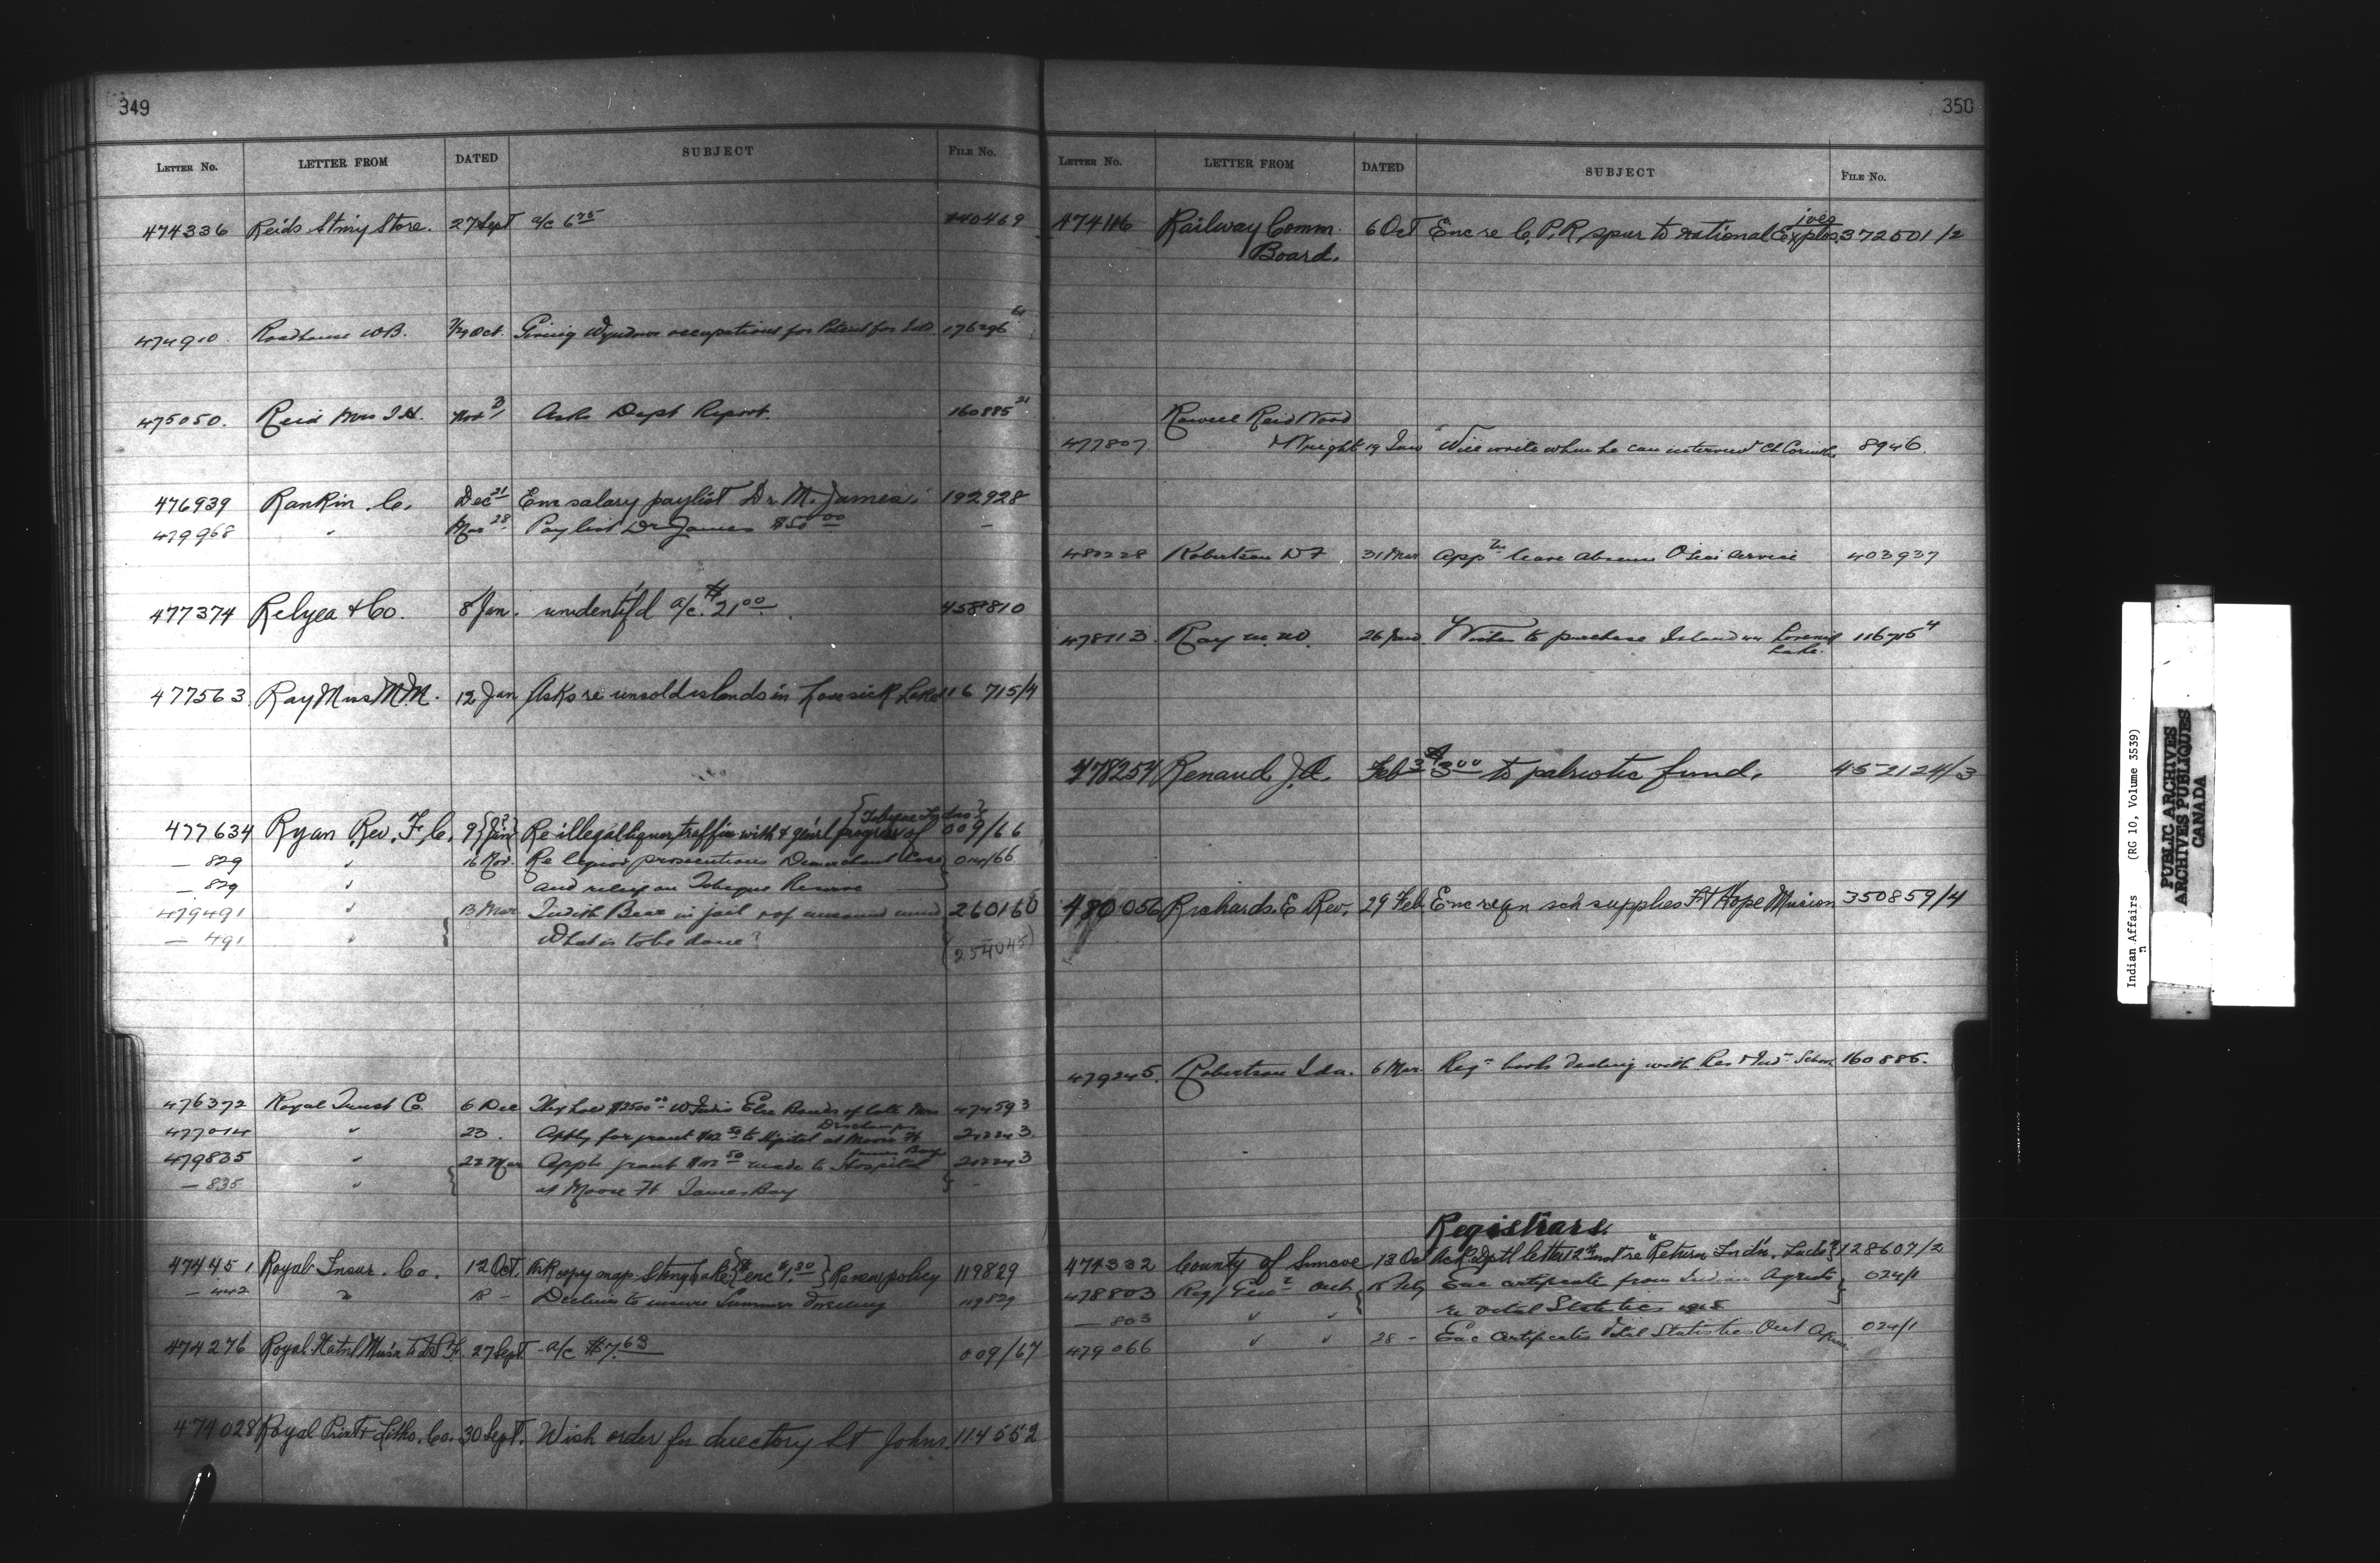 349
LETTER No. LETTER FROM DATED SUBJECT FILE No.
474336 Reids Stnry Store. 27 Sept a/c 6 75 140469
474910 Roadhouse W.B. Oct. Giving occupations for Patent for 176296
475050. Reid Mrs J.H. Nov 3/ Asks Dept Report. 160885 21
476939 Rankin C. Dec 21 Enc salary paylist Dr. M. James. 192928
479968 " Mar 28 Paylist Dr James $50 00 —
477374 Relyea & Co. 8 Jan. unidentif'd a/c. $21 00 458810
477563 Ray Miss M.M. 12 Jan Asks re unsold islands in Lovesick Lake 116 715/4
477634 Ryan Rev. F. C. 9 {Jan} Re illegal liquor traffic with & gen'l progress of {Tobique Indns} 009/66
— 829 " 16 Re liquor prosecutions Demerchant Case 014/66
— 829 " and relief on Tobique Reserve
479491 " 13 Mar Judith Bear in jail & of unsound mind 260160
— 491 " What is to be done? (254045)
476372 Royal Trust Co. 6 Dec They hold $2500 00 of late Mrs 474593
477014 " 23. Apply for grant to Hpital at Moose Ft 212243
James Bay
479835 " 22 Mar Appn grant made to Hospital 212243
— 835 " at Moose Ft James Bay —
474451 Royal Insur. Co. 12 Oct. Ask copy map Stony Lake {enc $1.30} Renew policy 119829
— 442 " 18 - Declines to insure Summer dwelling 119829
474276 Royal Natnl Miss'n to D.S.F. 27 Sept. a/c $7.63 009/67
474028 Royal Print & Litho. Co. 30 Sept. Wish order for directory St Johns. 114552
350
LETTER No. LETTER FROM DATED SUBJECT FILE No.
474116 Railway Comm. 6 Oct Enc re C.P.R. spur to national Explosives 372501/2
Board.
Rowell Reid Wood
477807 & Wright 19 Jan Will write when he can interview Ch 8946.
480228 Robertson D F 31 Mar App leave absence O'seas service 403937
478113. Ray M. M. 26 Jan Wishes to purchase Island in Lovesick 116715 4
Lake.
478254 Renaud J.A. Feb 3 $3 00 to patriotic fund. 452124/3
480056 Richards. E Rev. 29 Feb. Enc reqn sch supplies Ft Hope Mission 350859/4
479245. Robertson Ida. 6 Mar. Reqs book dealing with Res & Ind School 160885.
Registrars.
474332 County of Simcoe 13 Oct Ack Dptl letter 12th inst re "Return Ind'n. Lnds" 128607/2
478803 Reg/Genl Ont. 15 Feb Enc certificate from Indian Agents 024/1
— 803 " " re Vital Statistics 1915
479066 " " 28 - Enc certificates Vital Statistics Ont Agencies 024/1
Indian Affairs (RG 10, Volume 3539)
PUBLIC ARCHIVES
ARCHIVES PUBLIQUES
CANADA